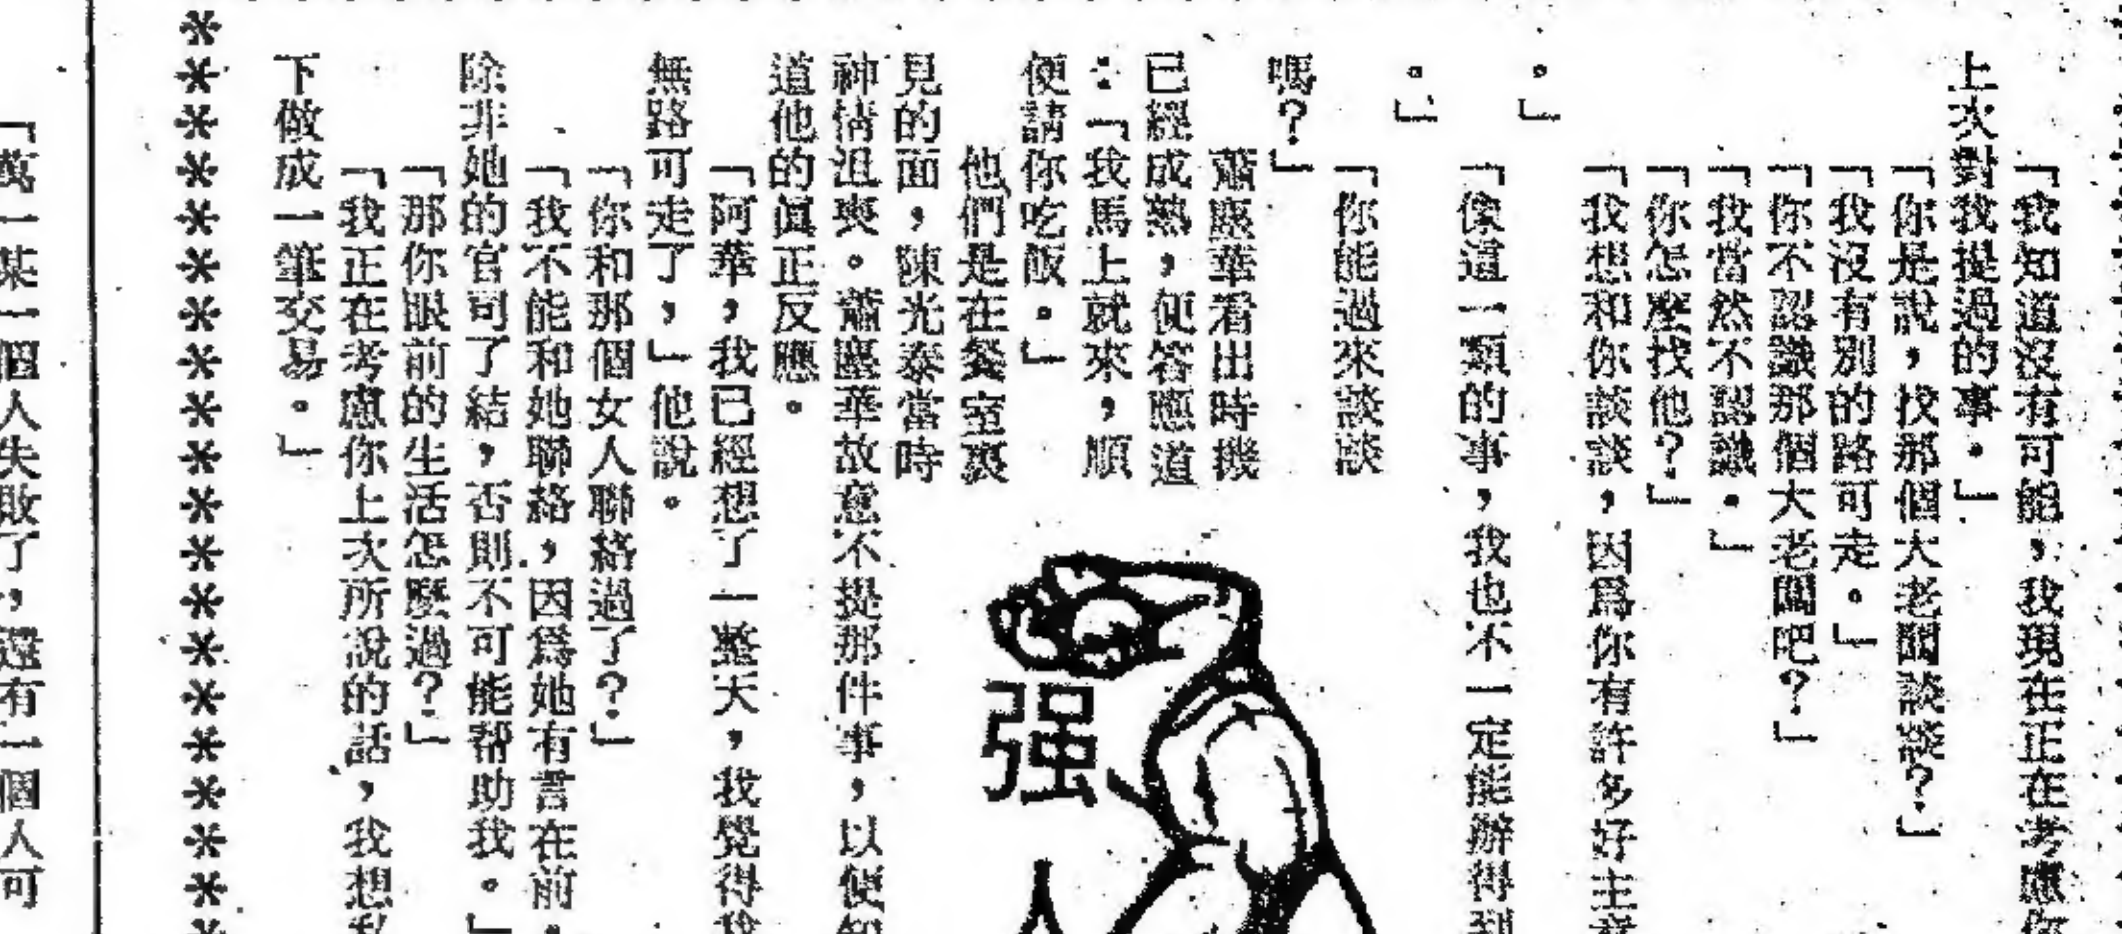 「我知道沒有可能，我現在正在考慮你
上次對我提過的事。」
「你是說，找那個大老闆談談？」
「我沒有別的路可走。」
「你不認識那個大老闆吧？」
「我當然不認識。」
「你怎麼找他？」
「我想和你談談，因爲你有許多好主意
。」
「像這一類的事，我也不一定能辦得到
。」
「你能過來談談
嗎？」
蕭塵華看出時機
已經成熟，便答應道
：「我馬上就來，順
便請你吃飯。」
他們是在餐室裏
見的面，陳光泰當時
神情沮喪。蕭塵華故意不提那件事，以便知
道他的眞正反應。
「阿華，我已經想了一整天，我覺得我
無路可走了，」他說。
「你和那個女人聯絡過了？」
「我不能和她聯絡，因爲她有言在前，
除非她的官司了結，否則不可能帮助我。」
「那你眼前的生活怎麼過？」
「我正在考慮你上次所說的話，我想私
下做成一筆交易。」
强
人
「萬一某一個人失敗了，還有一個人可